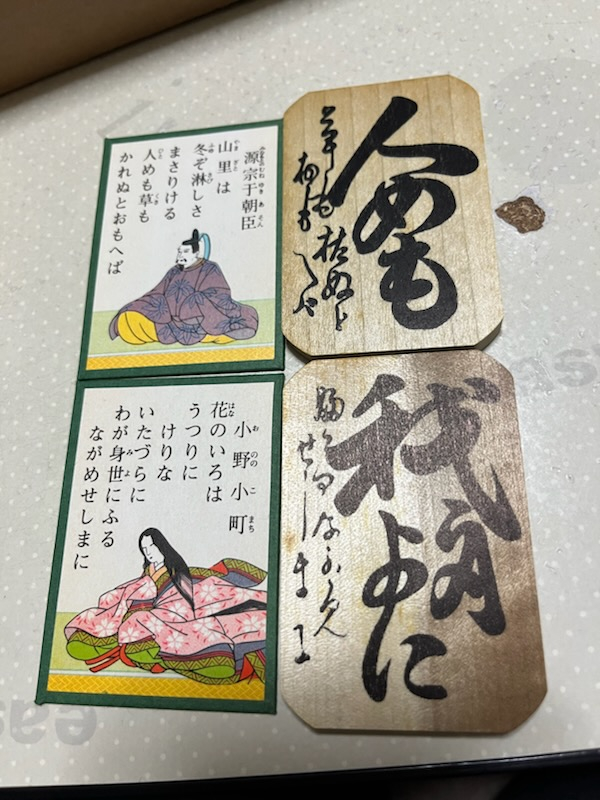 源宗于朝臣
山里は
冬ぞ淋しさ
まさりける
人めも草も
かれぬとおもへば
人めも
草も枯ぬと
小野小町
花のいろは
うつりに
けりな
いたづらに
わが身世にふる
ながめせしまに
我身
よに
せしまに